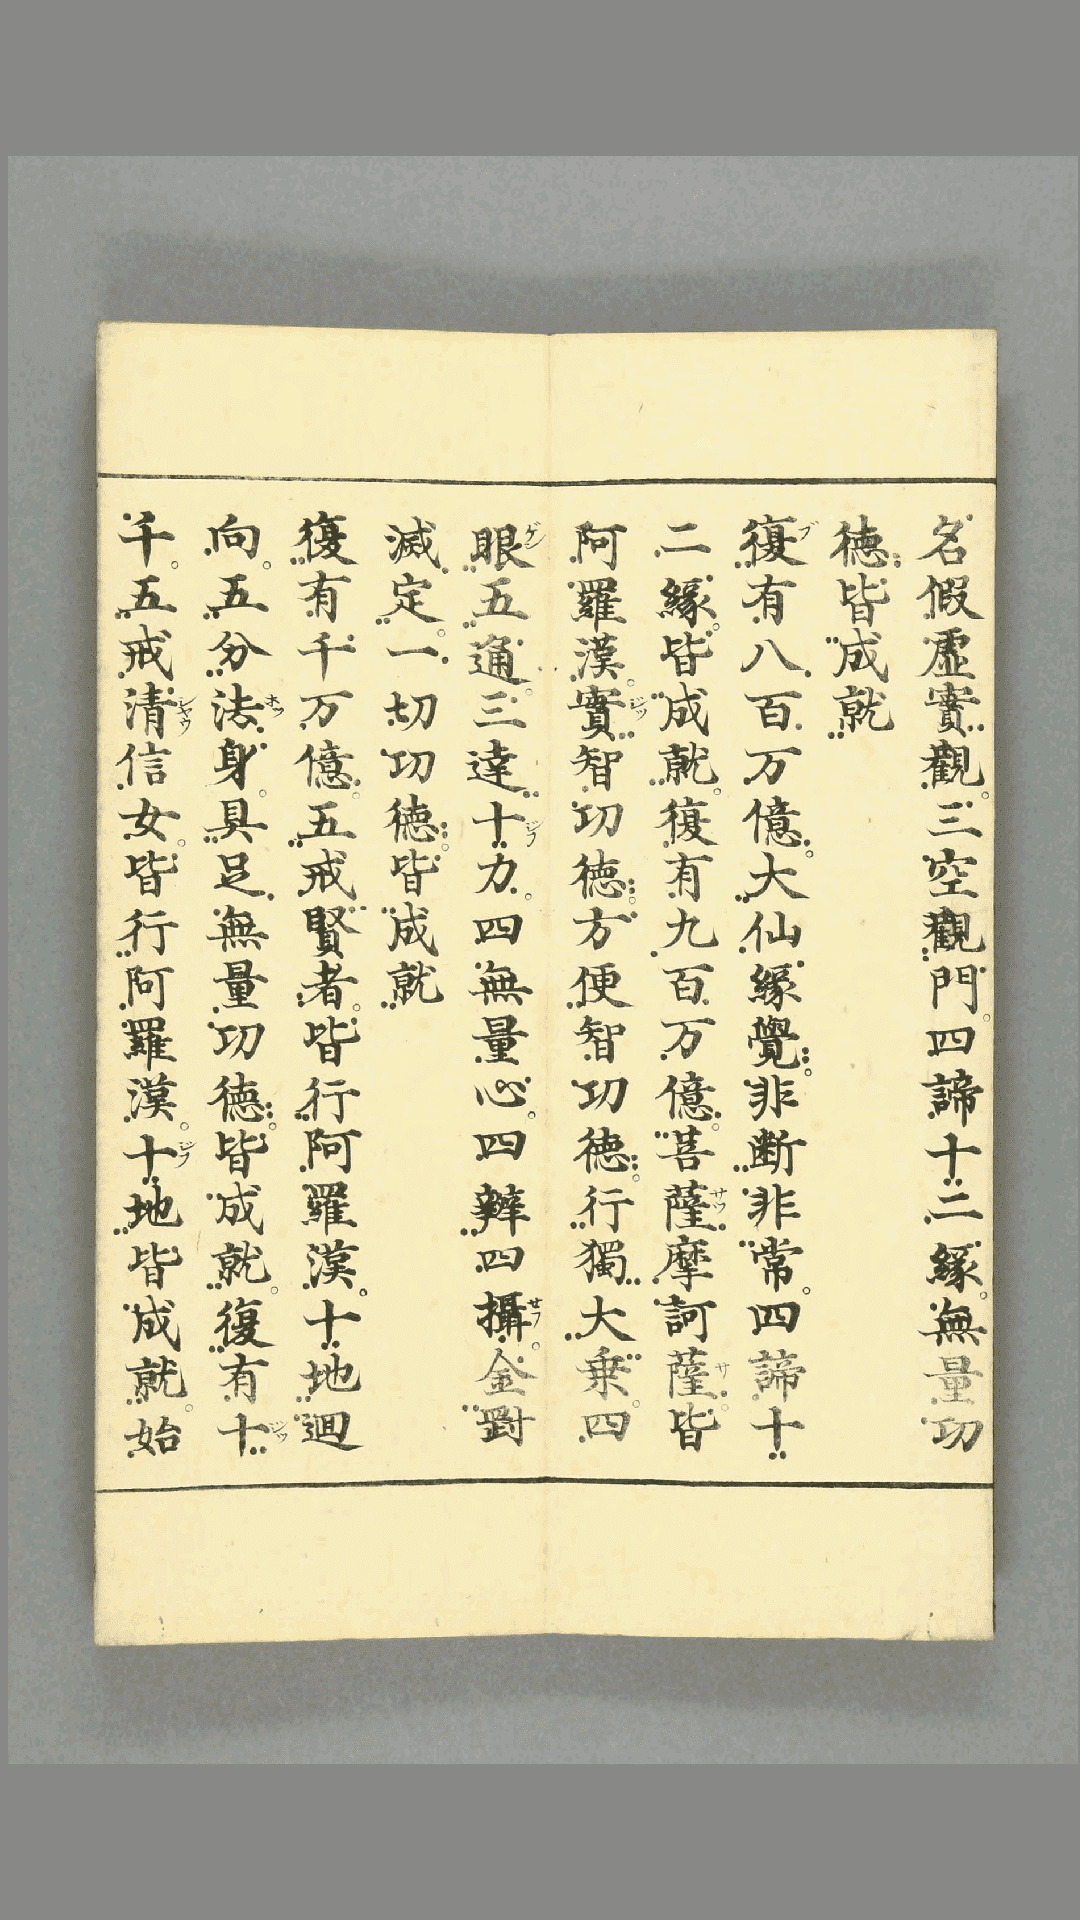 名假虛實觀三空觀門四諦十二緣無量功
德皆成就
復有八百万億大仙緣覺非断非常四諦十
二緣皆成就復有九百万億菩薩摩訶薩皆
阿羅漢實智功德方便智功德行獨大乗四
眼五通三達十力四無量心四辯四攝金剛
滅定一切功德皆成就
復有千万億五戒賢者皆行阿羅漢十地迴
向五分法身具足無量功德皆成就復有十
千五戒清信女皆行阿羅漢十地皆成就始